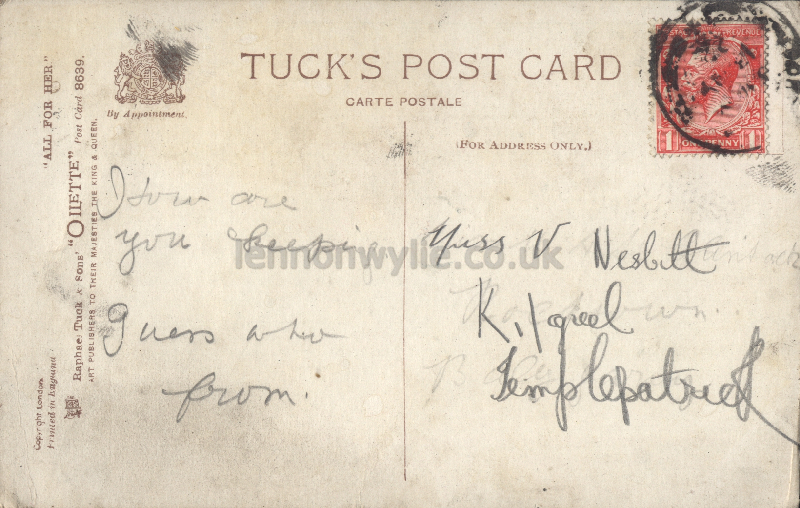 "ALL FOR HER"
"OILETTE" Post Card 8639.
Raphael Tuck & Sons'
ART PUBLISHERS TO THEIR MAJESTIES THE KING & QUEEN.
Copyright London
Printed in England
By Appointment.
TUCK'S POST CARD
CARTE POSTALE
(FOR ADDRESS ONLY.)
1 ONE PENNY 1
How are
you keeping
Guess who
from.
Miss V Nesbitt
Templepatrick
lennonwylie.co.uk